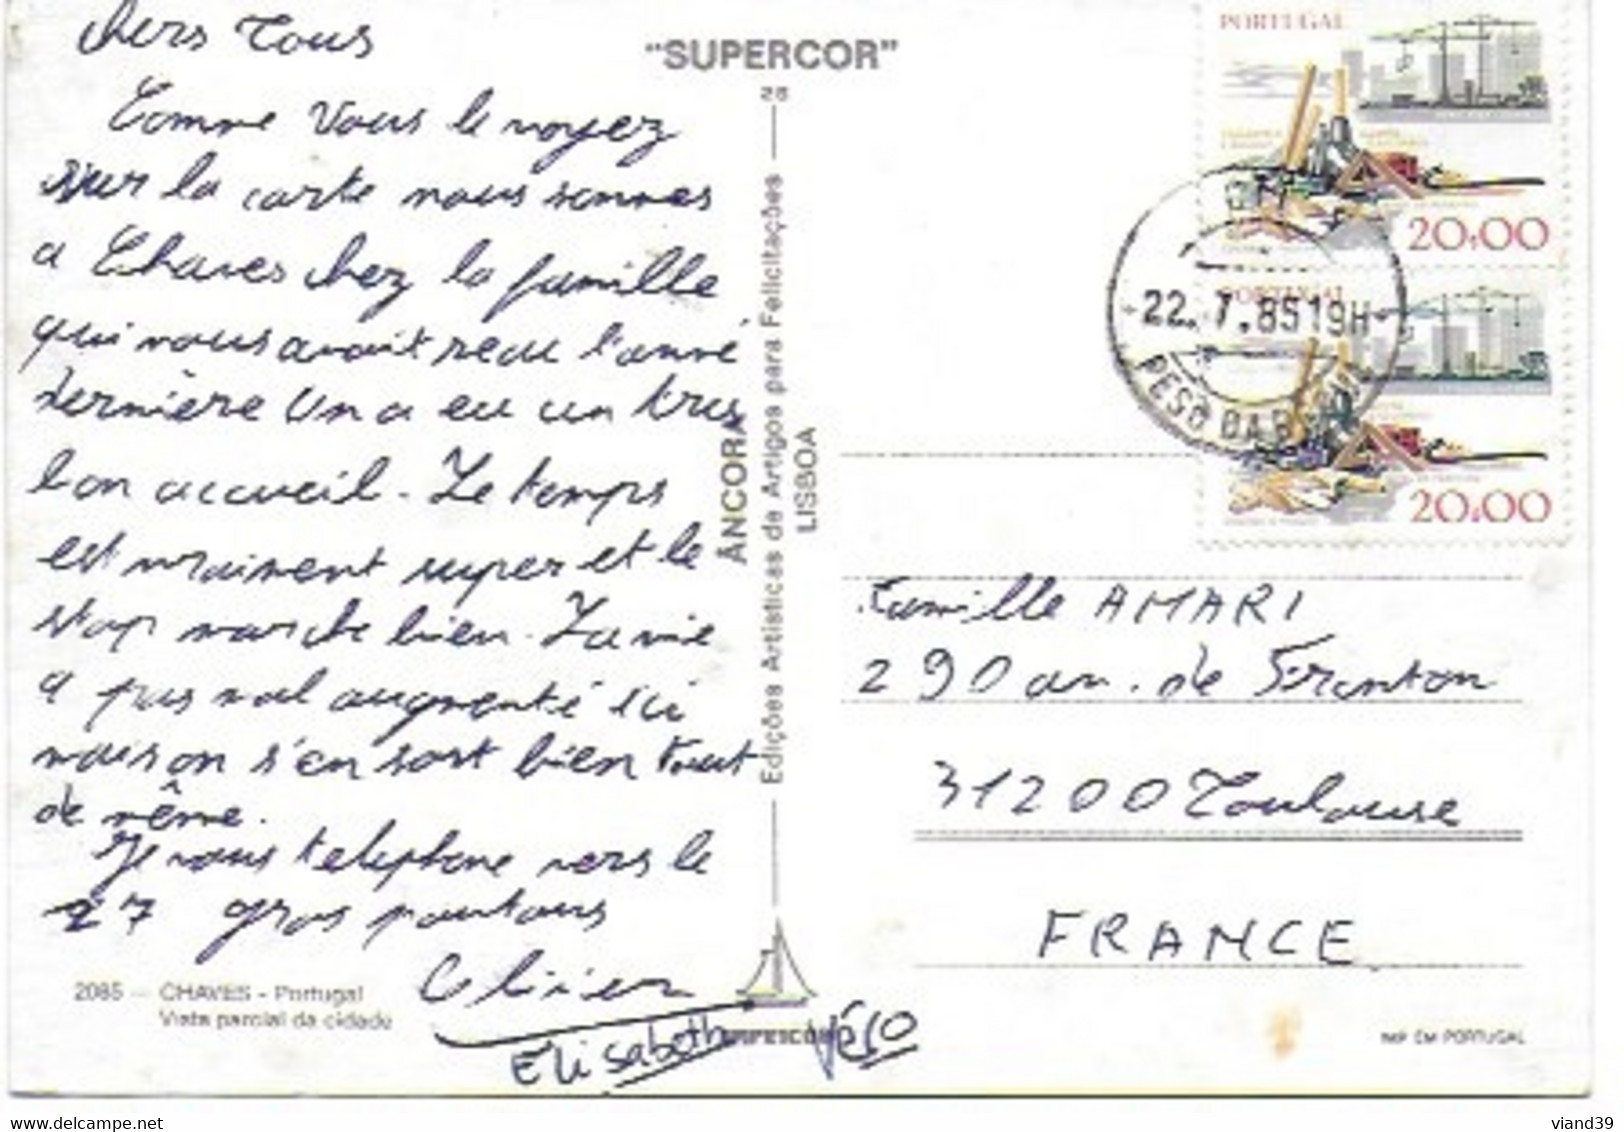 chers Tous
Comme Vous le voyez
sur la carte nous sommes
a Chaves chez la famille
qui nous avait recu l'anné
dernière Un a eu un tres
bon accueil - Le temps
est vraiment super et le
stop marche bien. La vie
a pas mal augmenté ici
mais on s'en sort bien tout
de même.
Je vous telephone vers le
27 gros
Olivier
Elisabeth Véro
2085 - CHAVES - Portugal
Vista parcial da cidade
"SUPERCOR"
28
Edições Artísticas de Artigos para Felicitações
ÂNCORA
LISBOA
SUPERCOR
PORTUGAL
20.00
PORTUGAL
20.00
22.7.85 19H
PESO DA RÉGUA
Famille AMARI
290 av. de Fronton
31200 Toulouse
FRANCE
IMP. EM PORTUGAL
www.delcampe.net
viand39